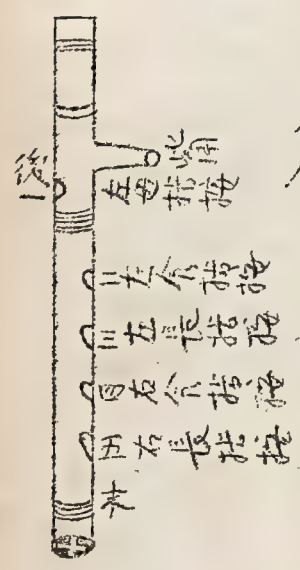 後一
左母指按
二左食指按
三左長指按
四右食指按
五右長指按